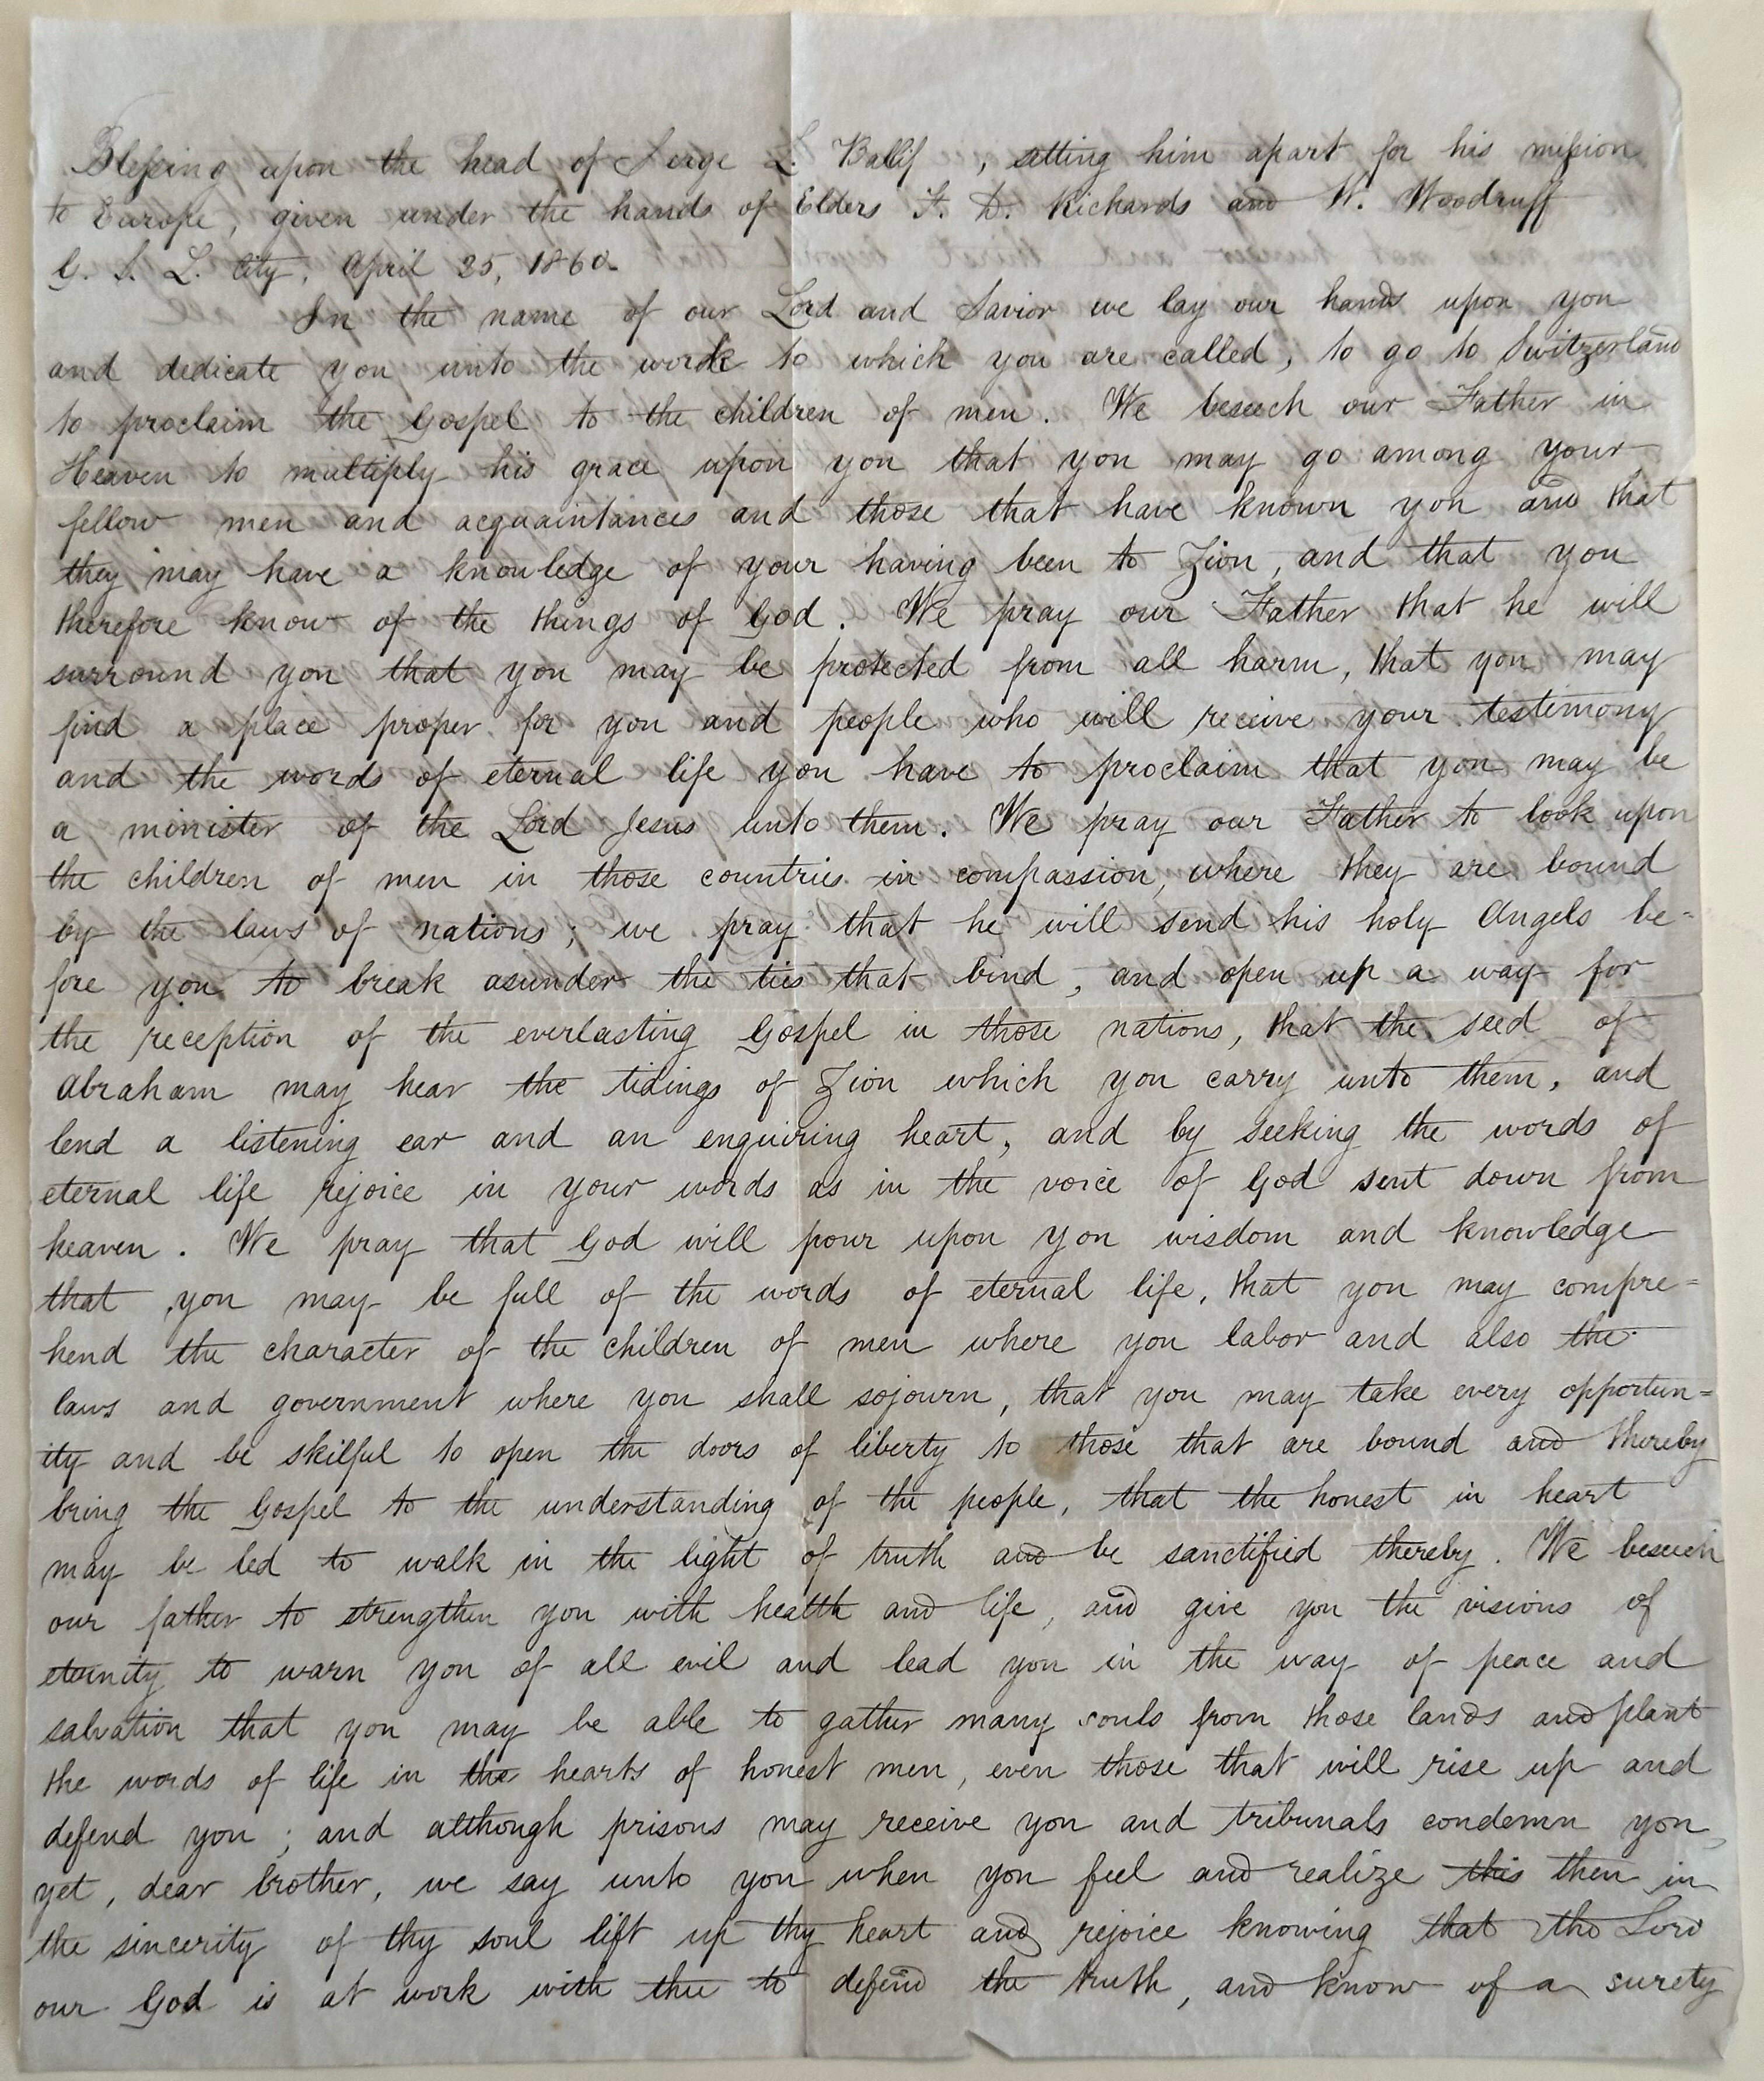 Blessing upon the head of Serge L. Ballif , setting him apart for his mission
to Europe, given under the hands of Elders F. D. Richards and W. Woodruff
G. S. L. City, April 25, 1860.
In the name of our Lord and Savior we lay our hands upon you
and dedicate you unto the work to which you are called, to go to Switzerland
to proclaim the Gospel to the children of men. We beseech our Father in
Heaven to multiply his grace upon you that you may go among your
fellow men and acquaintances and those that have known you and that
they may have a knowledge of your having been to Zion, and that you
therefore know of the things of God. We pray our Father that he will
surround you that you may be protected from all harm, that you may
find a place proper for you and people who will receive your testimony
and the words of eternal life you have to proclaim that you may be
a minister of the Lord Jesus unto them. We pray our Father to look upon
the children of men in those countries in compassion, where they are bound
by the laws of nations; we pray that he will send his holy Angels be=
fore you to break asunder the ties that bind, and open up a way for
the reception of the everlasting Gospel in those nations, that the seed of
Abraham may hear the tidings of Zion which you carry unto them, and
lend a listening ear and an enquiring heart, and by seeking the words of
eternal life rejoice in your words as in the voice of God sent down from
heaven. We pray that God will pour upon you wisdom and knowledge
that you may be full of the words of eternal life, that you may compre=
hend the character of the children of men where you labor and also the
laws and government where you shall sojourn, that you may take every opportun=
ity and be skilful to open the doors of liberty to those that are bound and thereby
bring the Gospel to the understanding of the people, that the honest in heart
may be led to walk in the light of truth and be sanctified thereby. We beseech
our father to strengthen you with health and life, and give you the visions of
eternity to warn you of all evil and lead you in the way of peace and
salvation that you may be able to gather many souls from those lands and plant
the words of life in the hearts of honest men, even those that will rise up and
defend you; and although prisons may receive you and tribunals condemn you,
yet, dear brother, we say unto you when you feel and realize this then in
the sincerity of thy soul lift up thy heart and rejoice knowing that the Lord
our God is at work with thee to defend the truth, and know of a surety